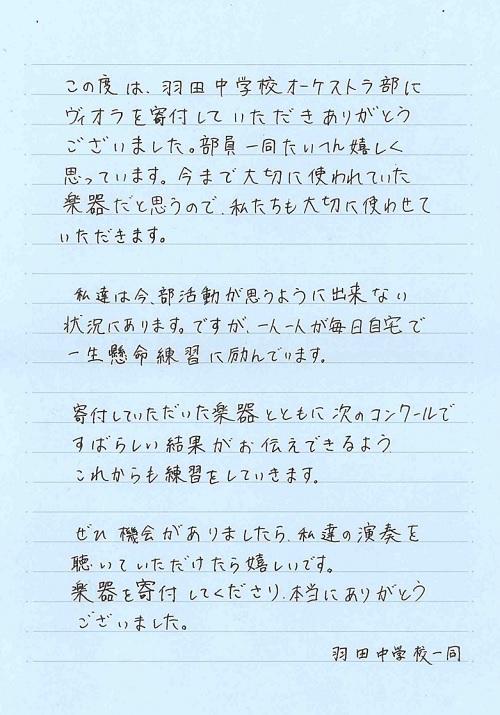 この度は、羽田中学校オーケストラ部に
ヴィオラを寄付していただきありがとう
ございました。部員一同たいへん嬉しく
思っています。今まで大切に使われていた
楽器だと思うので、私たちも大切に使わせて
いただきます。
私達は今、部活動が思うように出来ない
状況にあります。ですが、一人一人が毎日自宅で
一生懸命練習に励んでいます。
寄付していただいた楽器とともに次のコンクールで
すばらしい結果がお伝えできるよう
これからも練習をしていきます。
ぜひ機会がありましたら、私達の演奏を
聴いていただけたら嬉しいです。
楽器を寄付してくださり、本当にありがとう
ございました。
羽田中学校一同